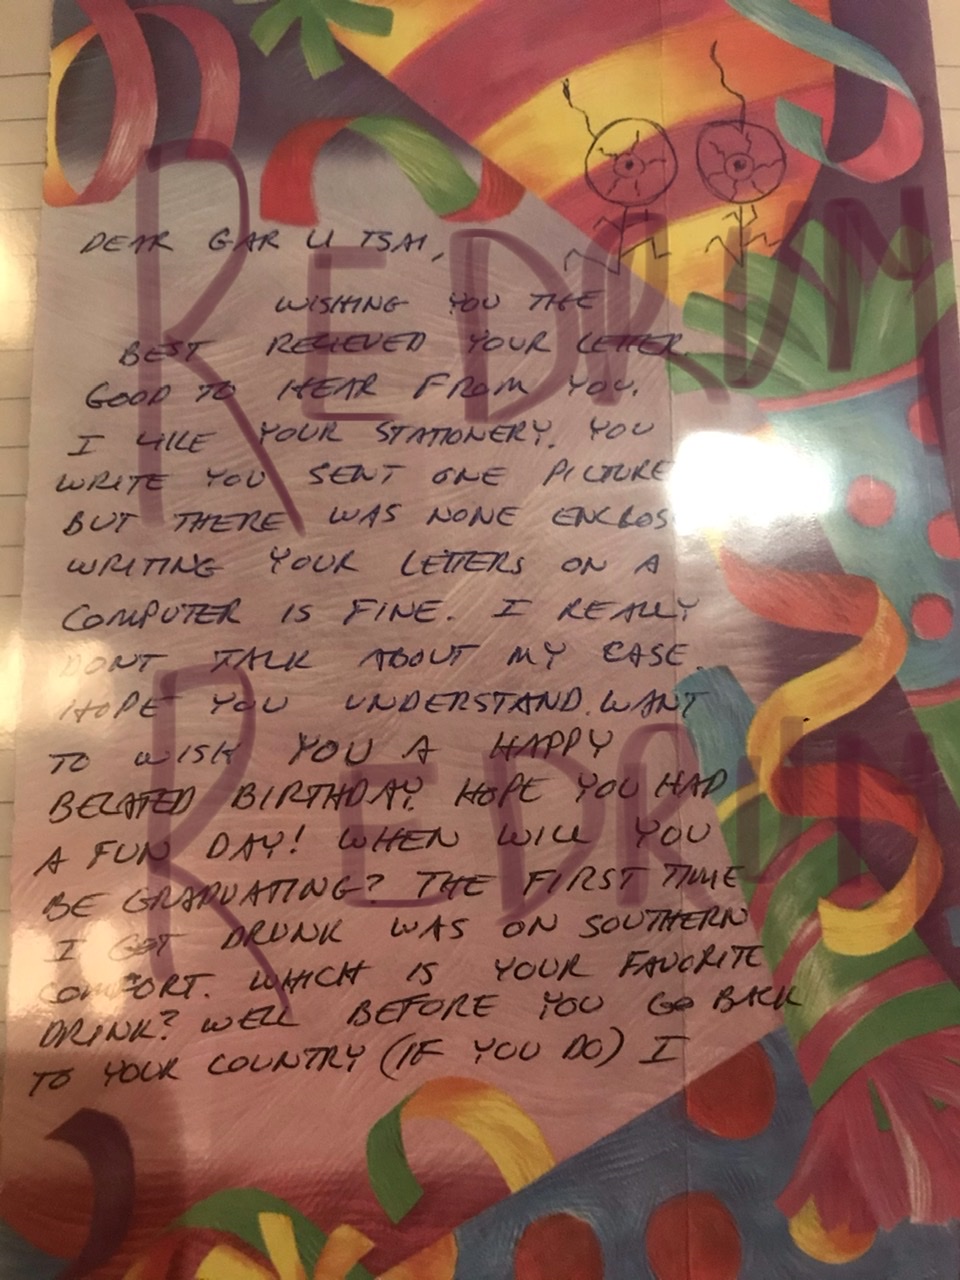 DEAR GAR U TSAI,
WISHING YOU THE
BEST RECIEVED YOUR LETTER.
GOOD TO HEAR FROM YOU.
I LIKE YOUR STATIONERY. YOU
WRITE YOU SENT ONE PICTURE
BUT THERE WAS NONE ENCLOS
WRITING YOUR LETTERS ON A
COMPUTER IS FINE. I REALLY
DONT TALK ABOUT MY CASE.
HOPE YOU UNDERSTAND. WANT
TO WISH YOU A HAPPY
BELATED BIRTHDAY. HOPE YOU HAD
A FUN DAY! WHEN WILL YOU
BE GRADUATING? THE FIRST TIME
I GOT DRUNK WAS ON SOUTHERN
COMFORT. WHICH IS YOUR FAVORITE
DRINK? WELL BEFORE YOU GO BACK
TO YOUR COUNTRY (IF YOU DO) I
REDRUM
REDRUM